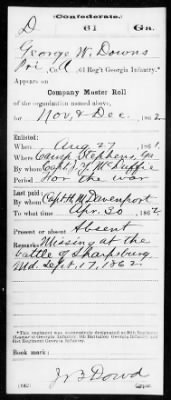 Confederate.
D 61 Ga.
George W. Downs
Pvt, Co. A, 61 Reg't Georgia Infantry.*
Appears on
Company Muster Roll
of the organization named above,
for Nov & Dec, 1862
Enlisted:
When Aug 27, 1861
Where Camp Stephens, Ga
By whom Capt. J. Y. McDuffie
Period for the war
Last paid:
By whom Capt. H. M. Davenport
To what time Apr. 30, 1862
Present or absent Absent
Remarks: Missing at the
battle of Sharpsburg
Md. Sept. 17, 1862
*This regiment was successively designated as
Georgia Infantry, 7th Battalion Georgia Infantry and
61st Regiment Georgia Infantry.
Book mark:
J B Dowd
(642) Copyist.